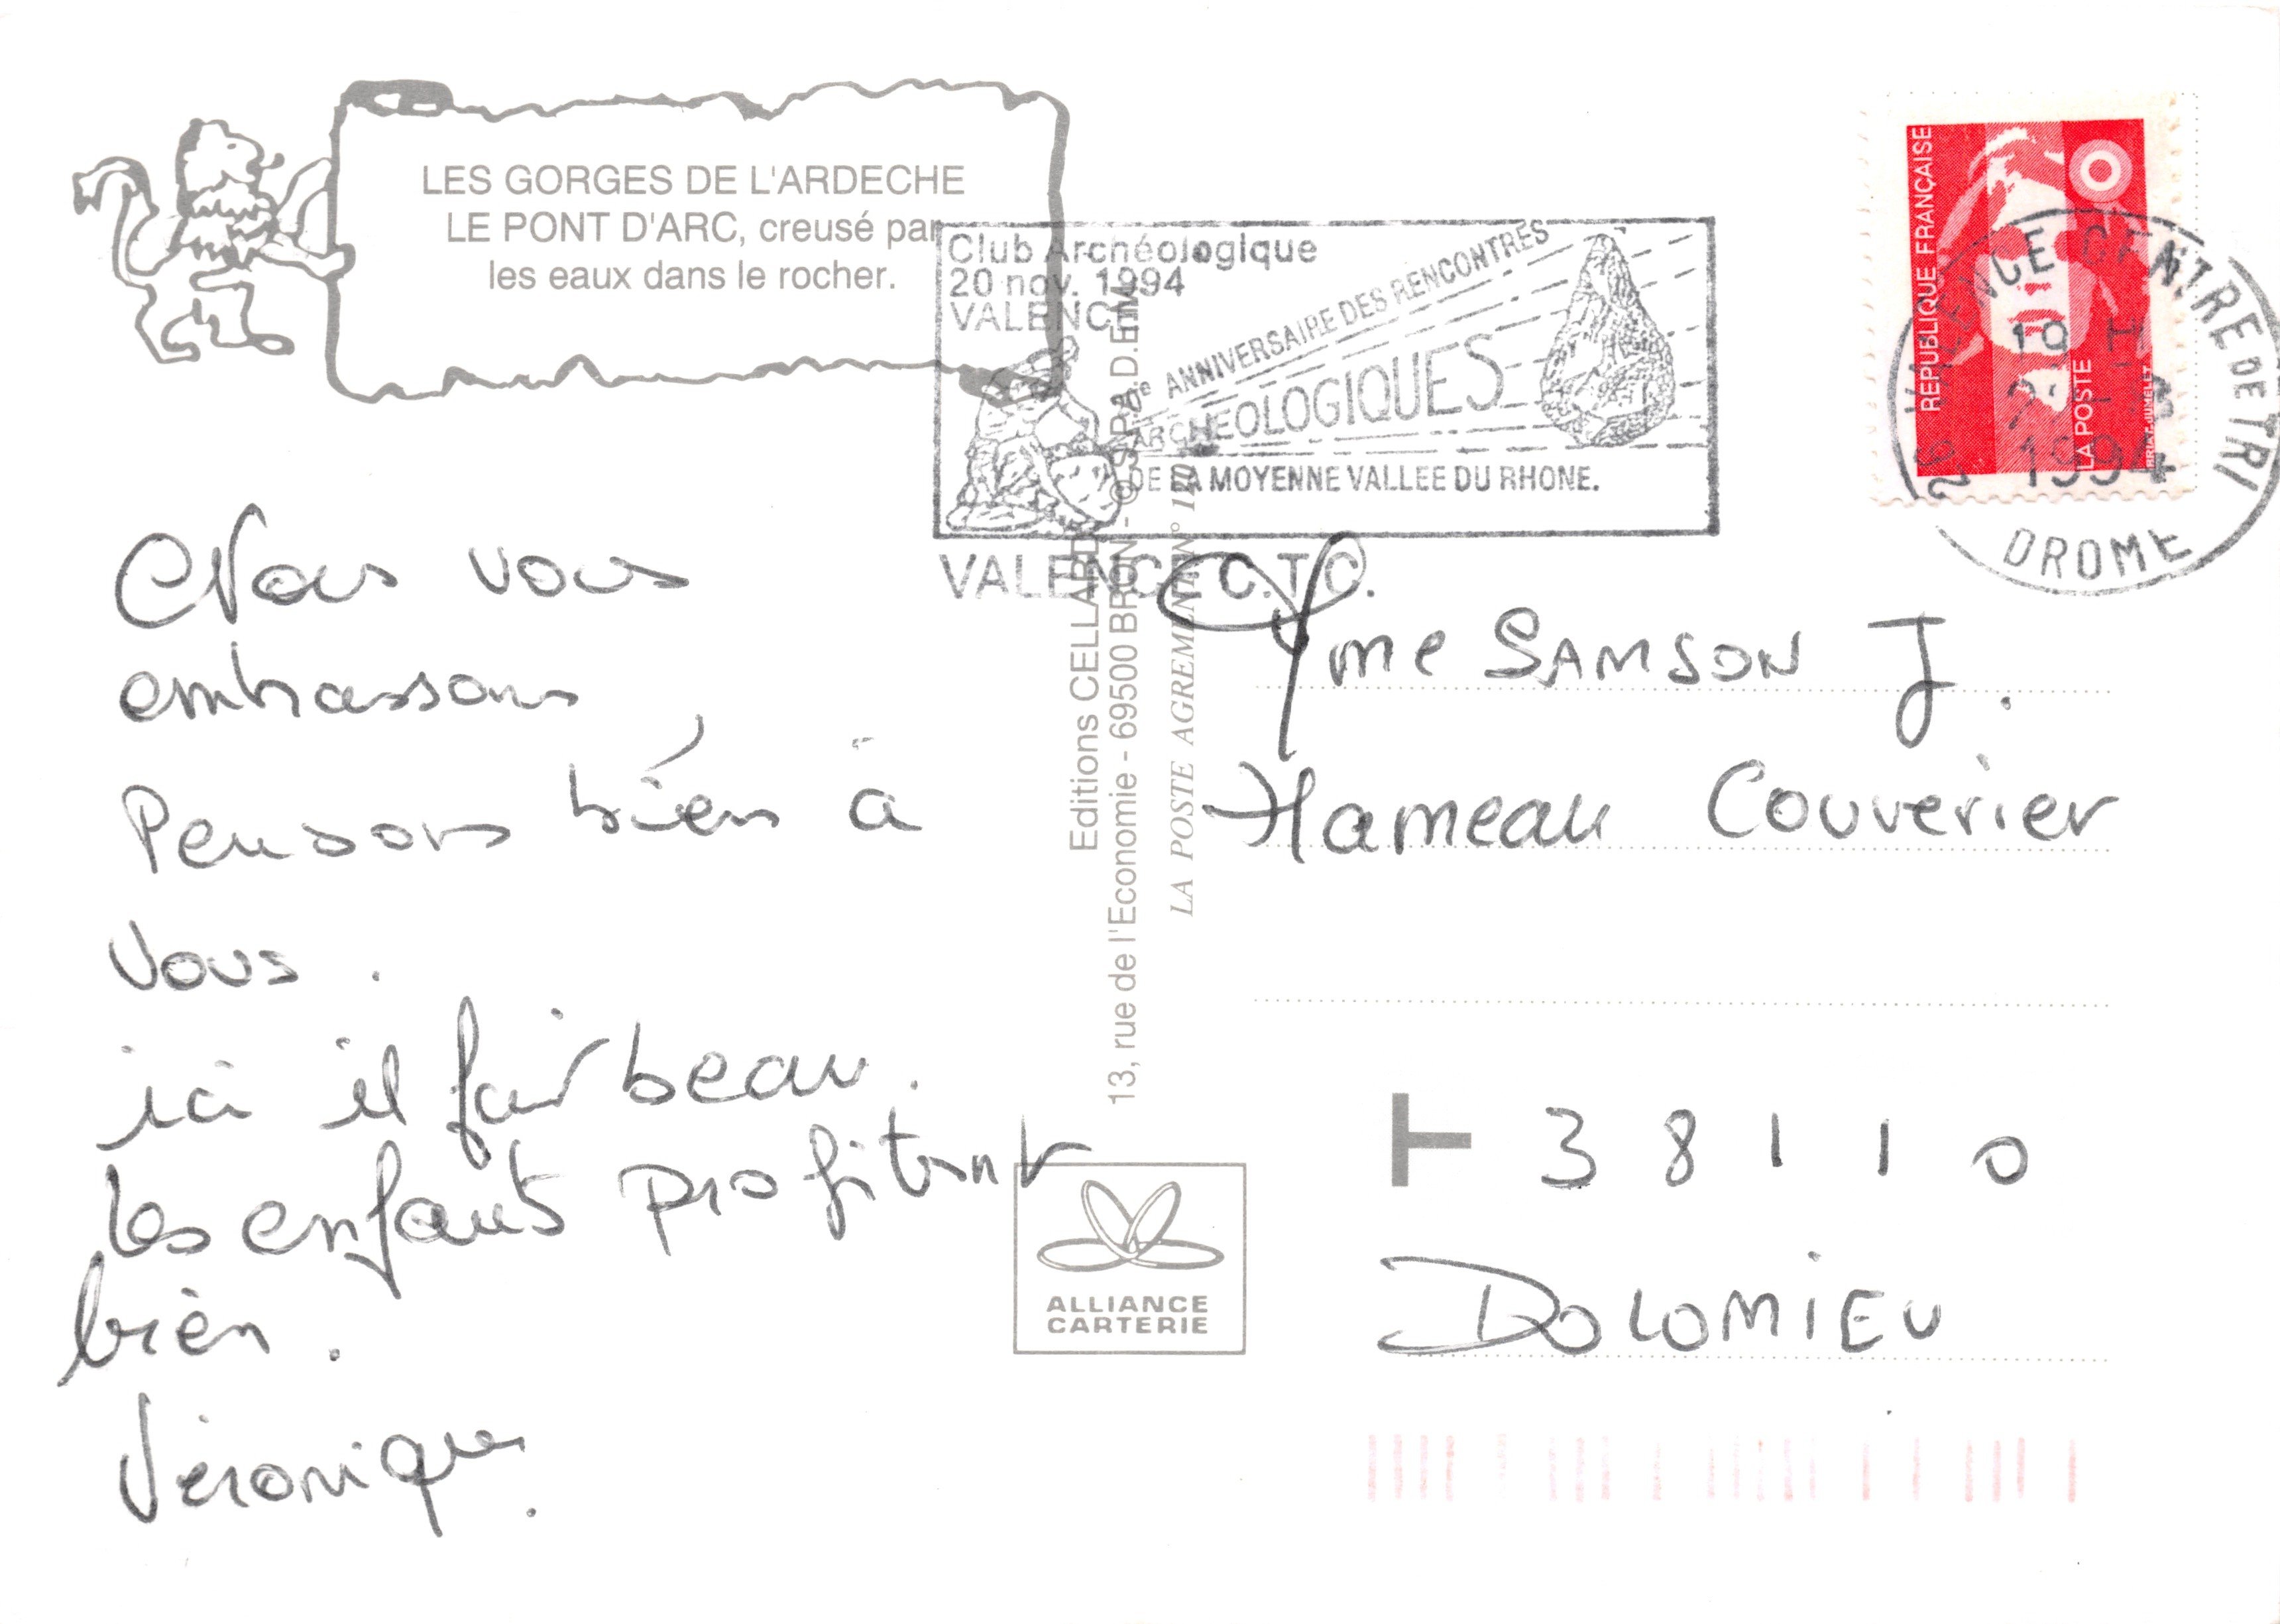 LES GORGES DE L'ARDECHE
LE PONT D'ARC, creusé par
les eaux dans le rocher.
Club Archéologique
20 nov. 1994
VALENCE
ANNIVERSAIRE DES RENCONTRES
ARCHEOLOGIQUES
DE LA MOYENNE VALLEE DU RHONE.
VALENCE C.T.C.
REPUBLIQUE FRANÇAISE
LA POSTE
26 VALENCE CENTRE DE TRI
19 H
1994
DROME
Nous vous
embrassons
Pensons bien à
vous.
ici il fait beau.
les enfants profitent
bien.
Véronique.
Editions CELLARD
13, rue de l'Economie - 69500 BRON - © S.P.A.D.E.M.
LA POSTE AGREMENT N°
Mme SAMSON J.
Hameau Couverier
38110
DOLOMIEU
ALLIANCE
CARTERIE